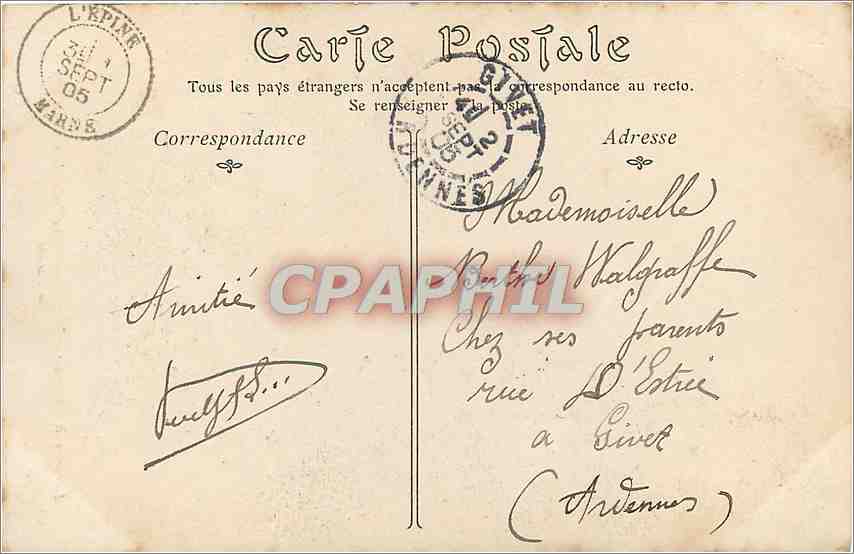 L'EPINE
SEPT
05
MARNE
Carte Postale
Tous les pays étrangers n'acceptent pas la correspondance au recto.
Se renseigner à la poste.
GIVET
2
SEPT
05
ARDENNES
Correspondance
Adresse
Amitié
Mademoiselle
Berthe Walgraffe
Chez ses parents
rue D'Estrée
à Givet
(Ardennes)
CPAPHIL